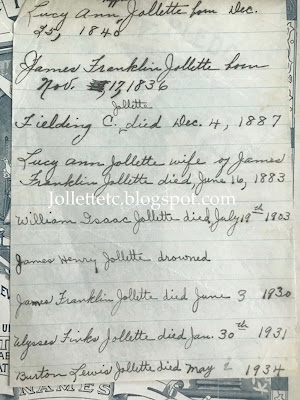 Lucy Ann Jollette born Dec.
25, 1840
James Franklin Jollette born
Nov. 17, 1836
Jollette
Fielding C., died Dec. 4, 1887
Lucy Ann Jollette wife of James
Franklin Jollette died, June 16, 1883
Jollettetc.blogspot.com
William Isaac Jollette died July 19th 1903
James Henry Jollette drowned
James Franklin Jollette died June 3 1930
Ulysses Finks Jollette died Jan. 30th 1931
Burton Lewis Jollette died May 2 1934
NAMES